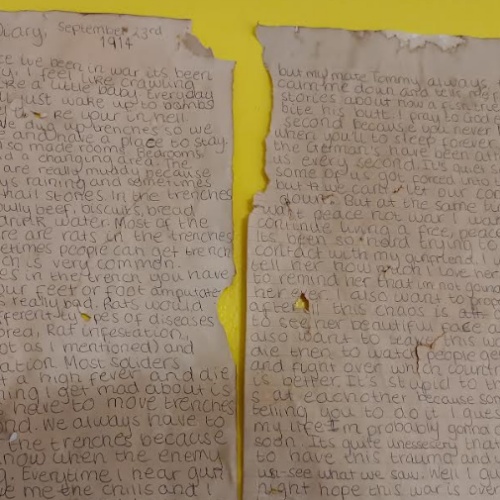 Diary, September 23rd
1914
ce we been in war its been
I feel like crawling
like a little baby. Everyday
just wake up to bombs
your in hell.
We dug up trenches so we
have a place to stay.
so made rooms, bedrooms
and a changing area. The
are really muddy because
raining and sometimes
hail stones. In the trenches
bully beef, biscuits, bread
water. Most of the
there are rats in the trenches
sometimes people can get trench
is very common.
in the trench you have
your feet or foot amputate
is really bad. Rats would
different types of diseases
Rat infestation,
as I mentioned) and
Most soldiers
a high fever and die
thing I get mad about is
have to move trenches
and. We always have to
the trenches because
know when the enemy
Everytime I hear gun
me the chills and
but my mate Tommy always
calm me down and tell my
stories about how a fish tried
bite his butt. I pray to God
second because you never
when you'll to sleep forever
the German's have been at
us every second. It's quiet
some of us got forced into
but we can't let our co
down. But at the same t
want peace not war. I wa
continue living a free, peace
Its been so hard trying to
contact with my girlfriend. I
tell her how much I love he
to remind her that im not goin
her ever. I also want to prop
after this chaos is
to see her beautiful face
also want to leave this w
die then to watch people ge
and fight over which count
is better. It's stupid to
at eachother because som
telling you to do it I gues
my life I'm probably gonna
soon. Its quite unessesery that
to have this trauma and
see what we saw. Well I gu
night hope this war is over